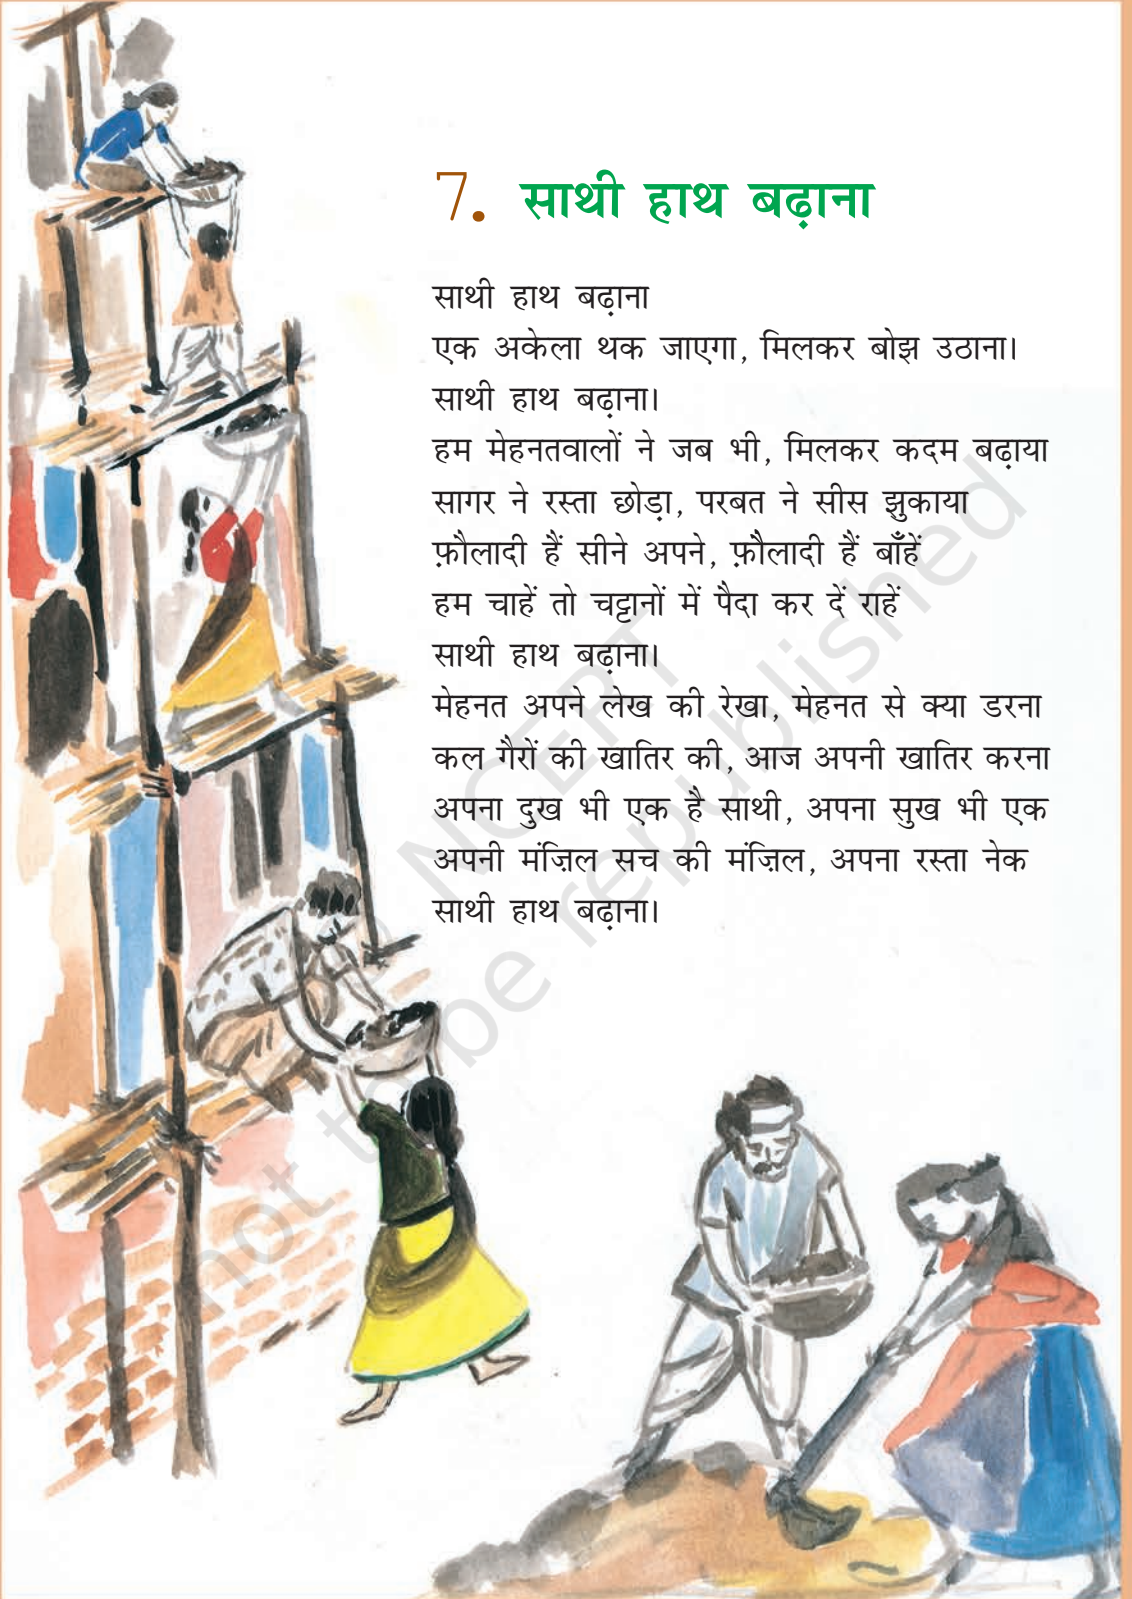 7. साथी हाथ बढ़ाना
साथी हाथ बढ़ाना
एक अकेला थक जाएगा, मिलकर बोझ उठाना।
साथी हाथ बढ़ाना।
हम मेहनतवालों ने जब भी, मिलकर कदम बढ़ाया
सागर ने रस्ता छोड़ा, परबत ने सीस झुकाया
फ़ौलादी हैं सीने अपने, फ़ौलादी हैं बाँहें
हम चाहें तो चट्टानों में पैदा कर दें राहें
साथी हाथ बढ़ाना।
मेहनत अपने लेख की रेखा, मेहनत से क्या डरना
कल गैरों की खातिर की, आज अपनी खातिर करना
अपना दुख भी एक है साथी, अपना सुख भी एक
अपनी मंज़िल सच की मंज़िल, अपना रस्ता नेक
साथी हाथ बढ़ाना।
© NCERT
not to be republished